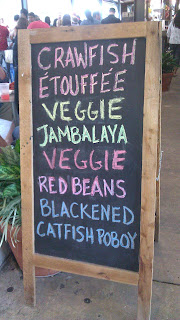 CRAWFISH
ÉTOUFFÉE
VEGGIE
JAMBALAYA
VEGGIE
RED BEANS
BLACKENED
CATFISH POBOY